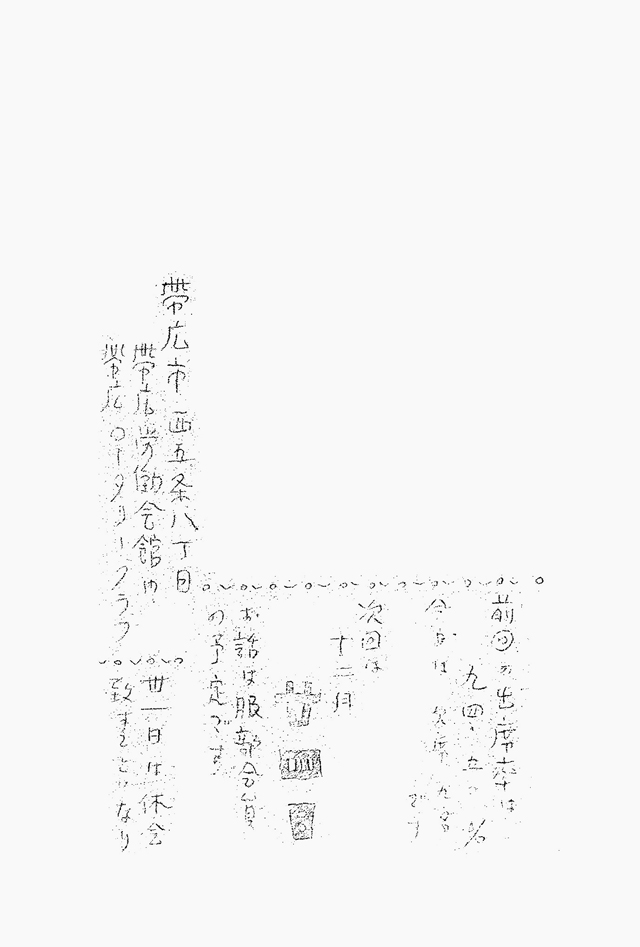 前回の出席率は
九四・五つ%
今日は 欠席 九名
です
次回は
十二月
廿四日
お話は服部会員
の予定です
帯広市西五条八丁目
帯広労働会館内
帯広ロータリークラブ
卅一日は休会
致すことになり